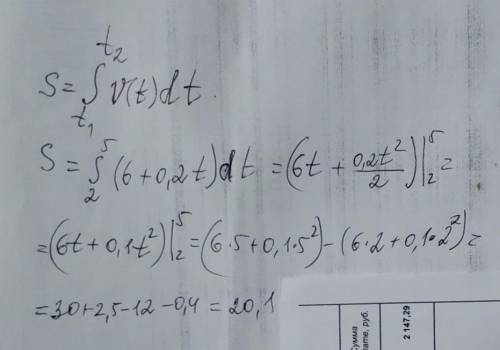 S = ∫_{t₁}^{t₂} v(t)dt.
S = ∫_{2}^{5} (6 + 0,2t)dt = (6t + 0,2t²/2)|_{2}^{5} =
= (6t + 0,1t²)|_{2}^{5} = (6·5 + 0,1·5²) - (6·2 + 0,1·2²) =
= 30 + 2,5 - 12 - 0,4 = 20,1
Сумма
плате, руб.
2 147,29